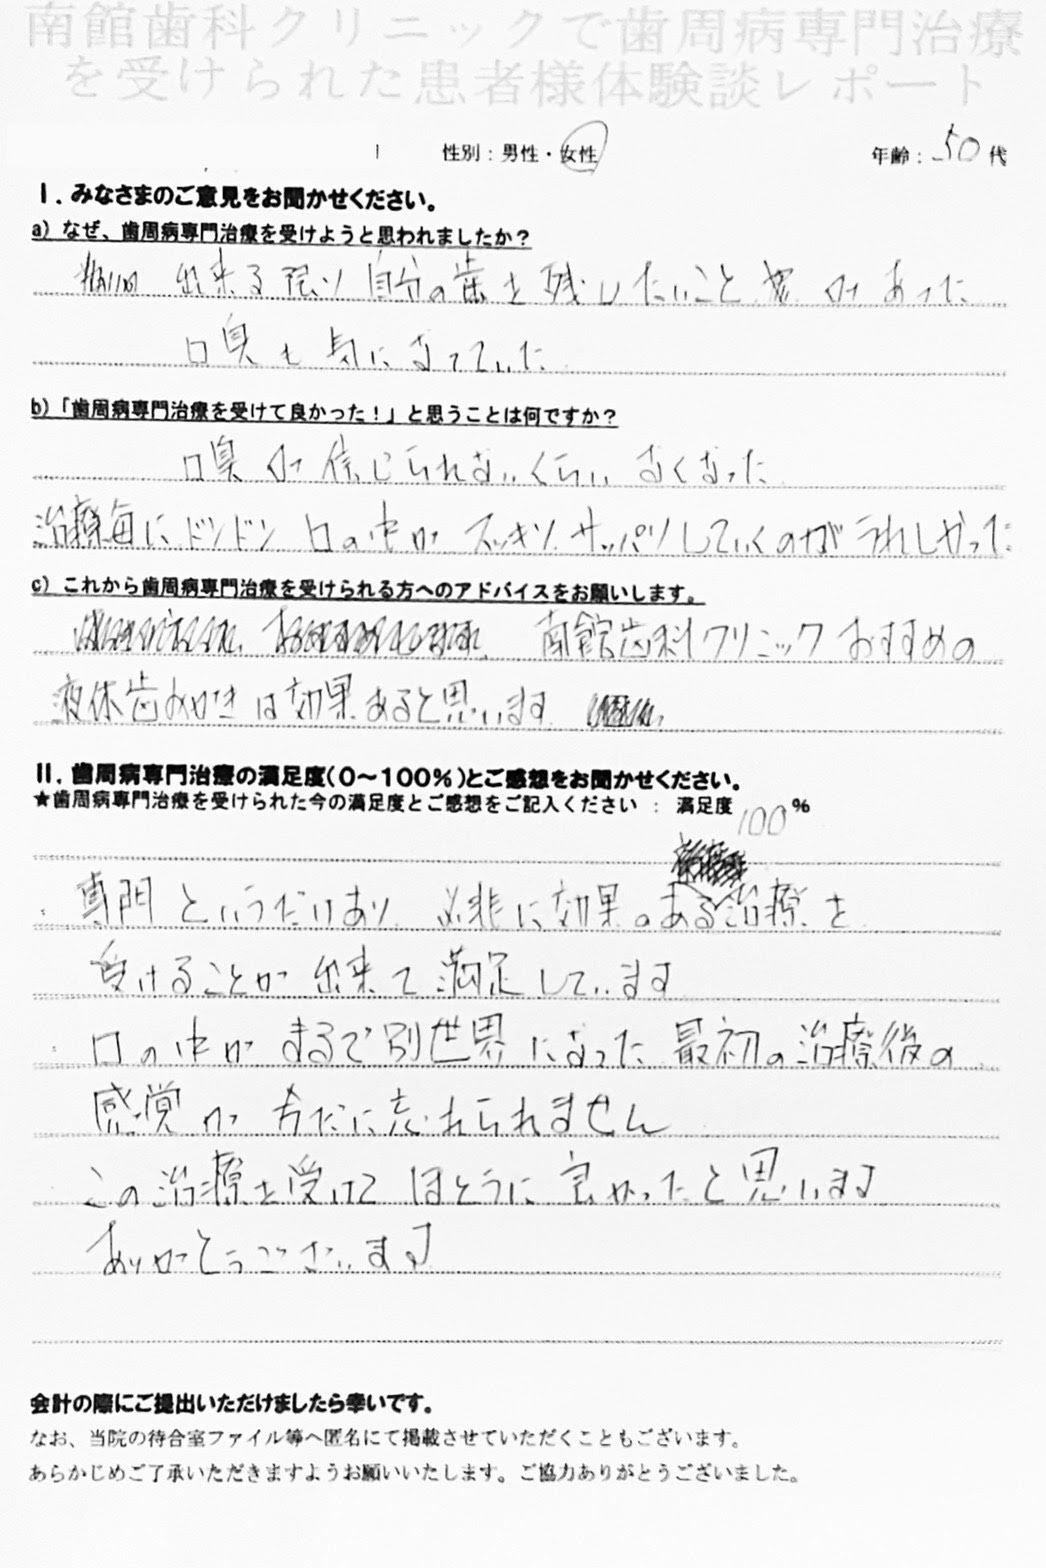 南館歯科クリニックで歯周病専門治療
を受けられた患者様体験談レポート
性別：男性・女性 年齢：50代
Ⅰ．みなさまのご意見をお聞かせください。
a）なぜ、歯周病専門治療を受けようと思われましたか？
出来る限り 自分の歯を残したいこと があった
口臭も気になっていた
b）「歯周病専門治療を受けて良かった！」と思うことは何ですか？
口臭が信じられないくらいなくなった
治療毎にドンドン口の中がスッキリサッパリしていくのがうれしかった
c）これから歯周病専門治療を受けられる方へのアドバイスをお願いします。
南館歯科クリニックおすすめの
液体歯みがきは効果あると思います
Ⅱ．歯周病専門治療の満足度（0〜100％）とご感想をお聞かせください。
★歯周病専門治療を受けられた今の満足度とご感想をご記入ください ： 満足度100％
専門というだけあり 非に効果のある治療を
受けることが出来て満足しています
口の中がまるで別世界になった 最初の治療後の
感覚が 忘れられません
この治療を受けてほんとうに良かったと思います
ありがとうございます
会計の際にご提出いただけましたら幸いです。
なお、当院の待合室ファイル等へ匿名にて掲載させていただくこともございます。
あらかじめご了承いただきますようお願いいたします。ご協力ありがとうございました。